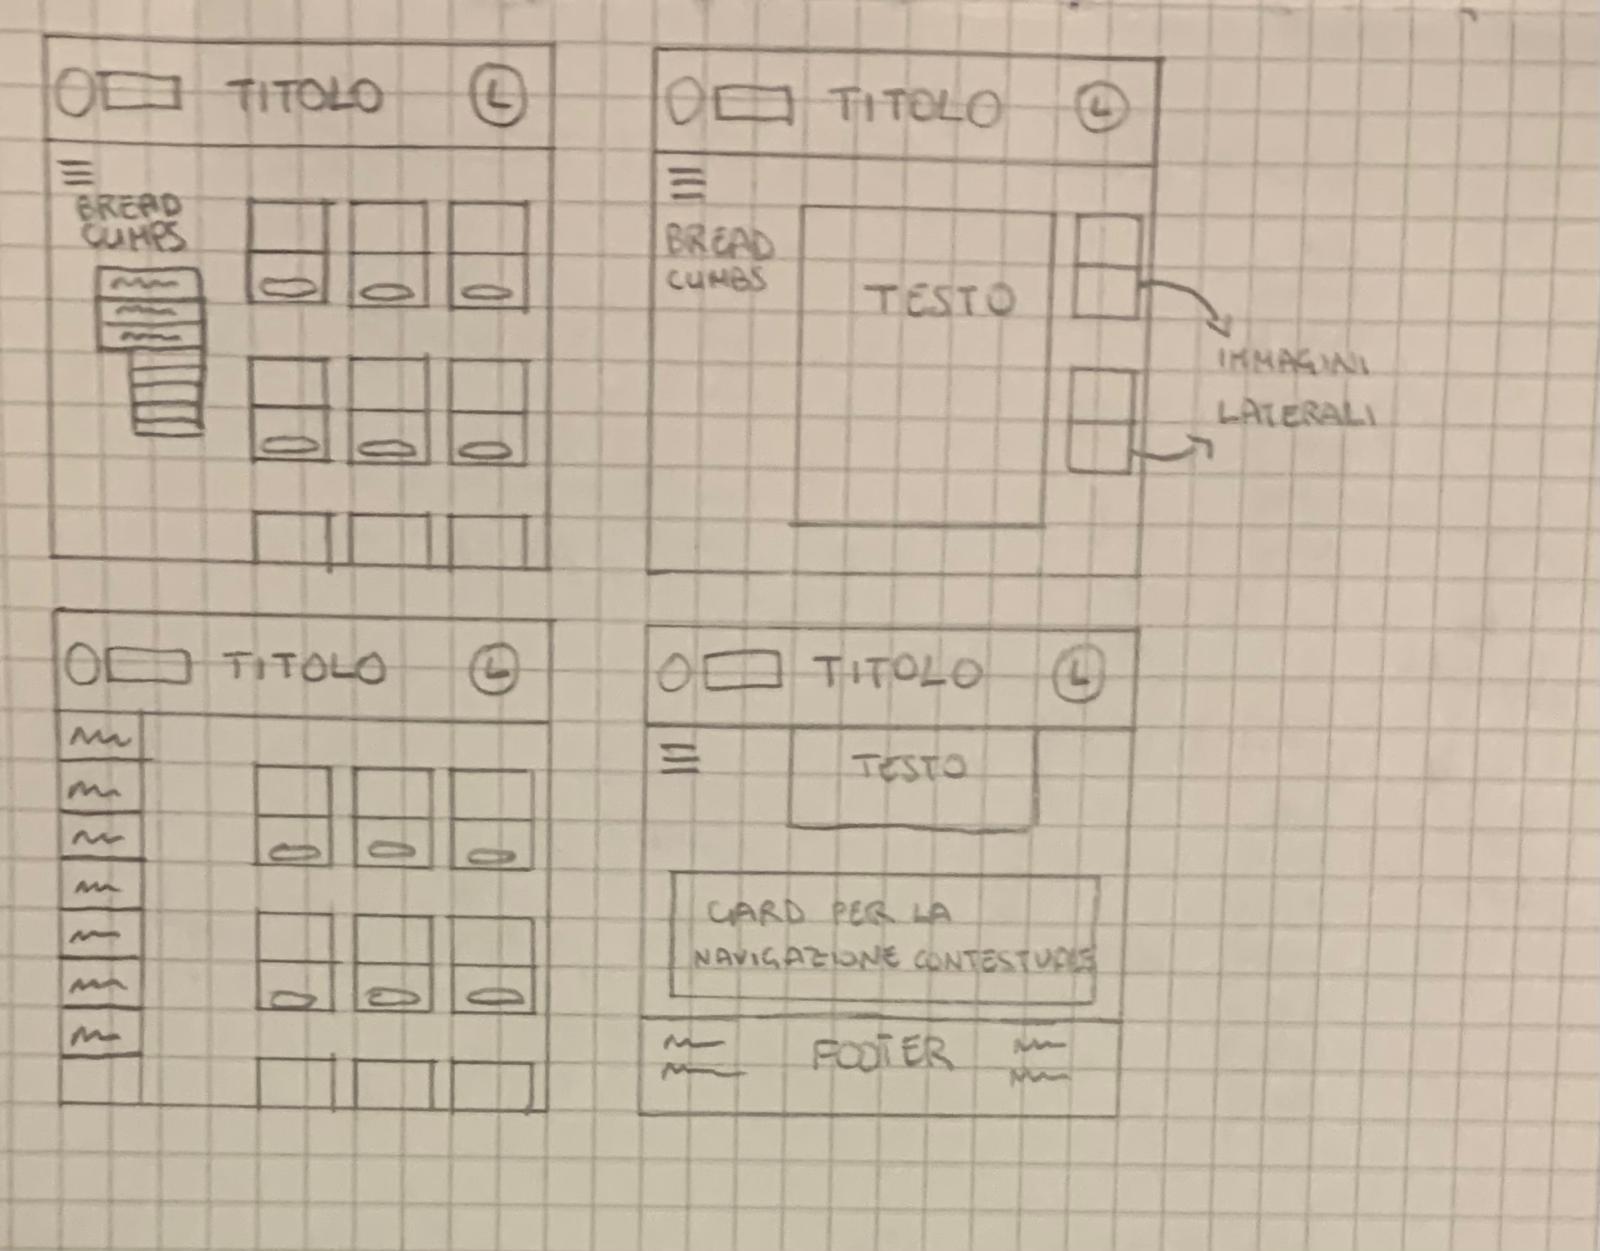 TITOLO L
BREAD
CUMBS
TITOLO L
BREAD
CUMBS
TESTO
IMMAGINI
LATERALI
TITOLO L
TITOLO L
TESTO
CARD PER LA
NAVIGAZIONE CONTESTUALE
FOOTER